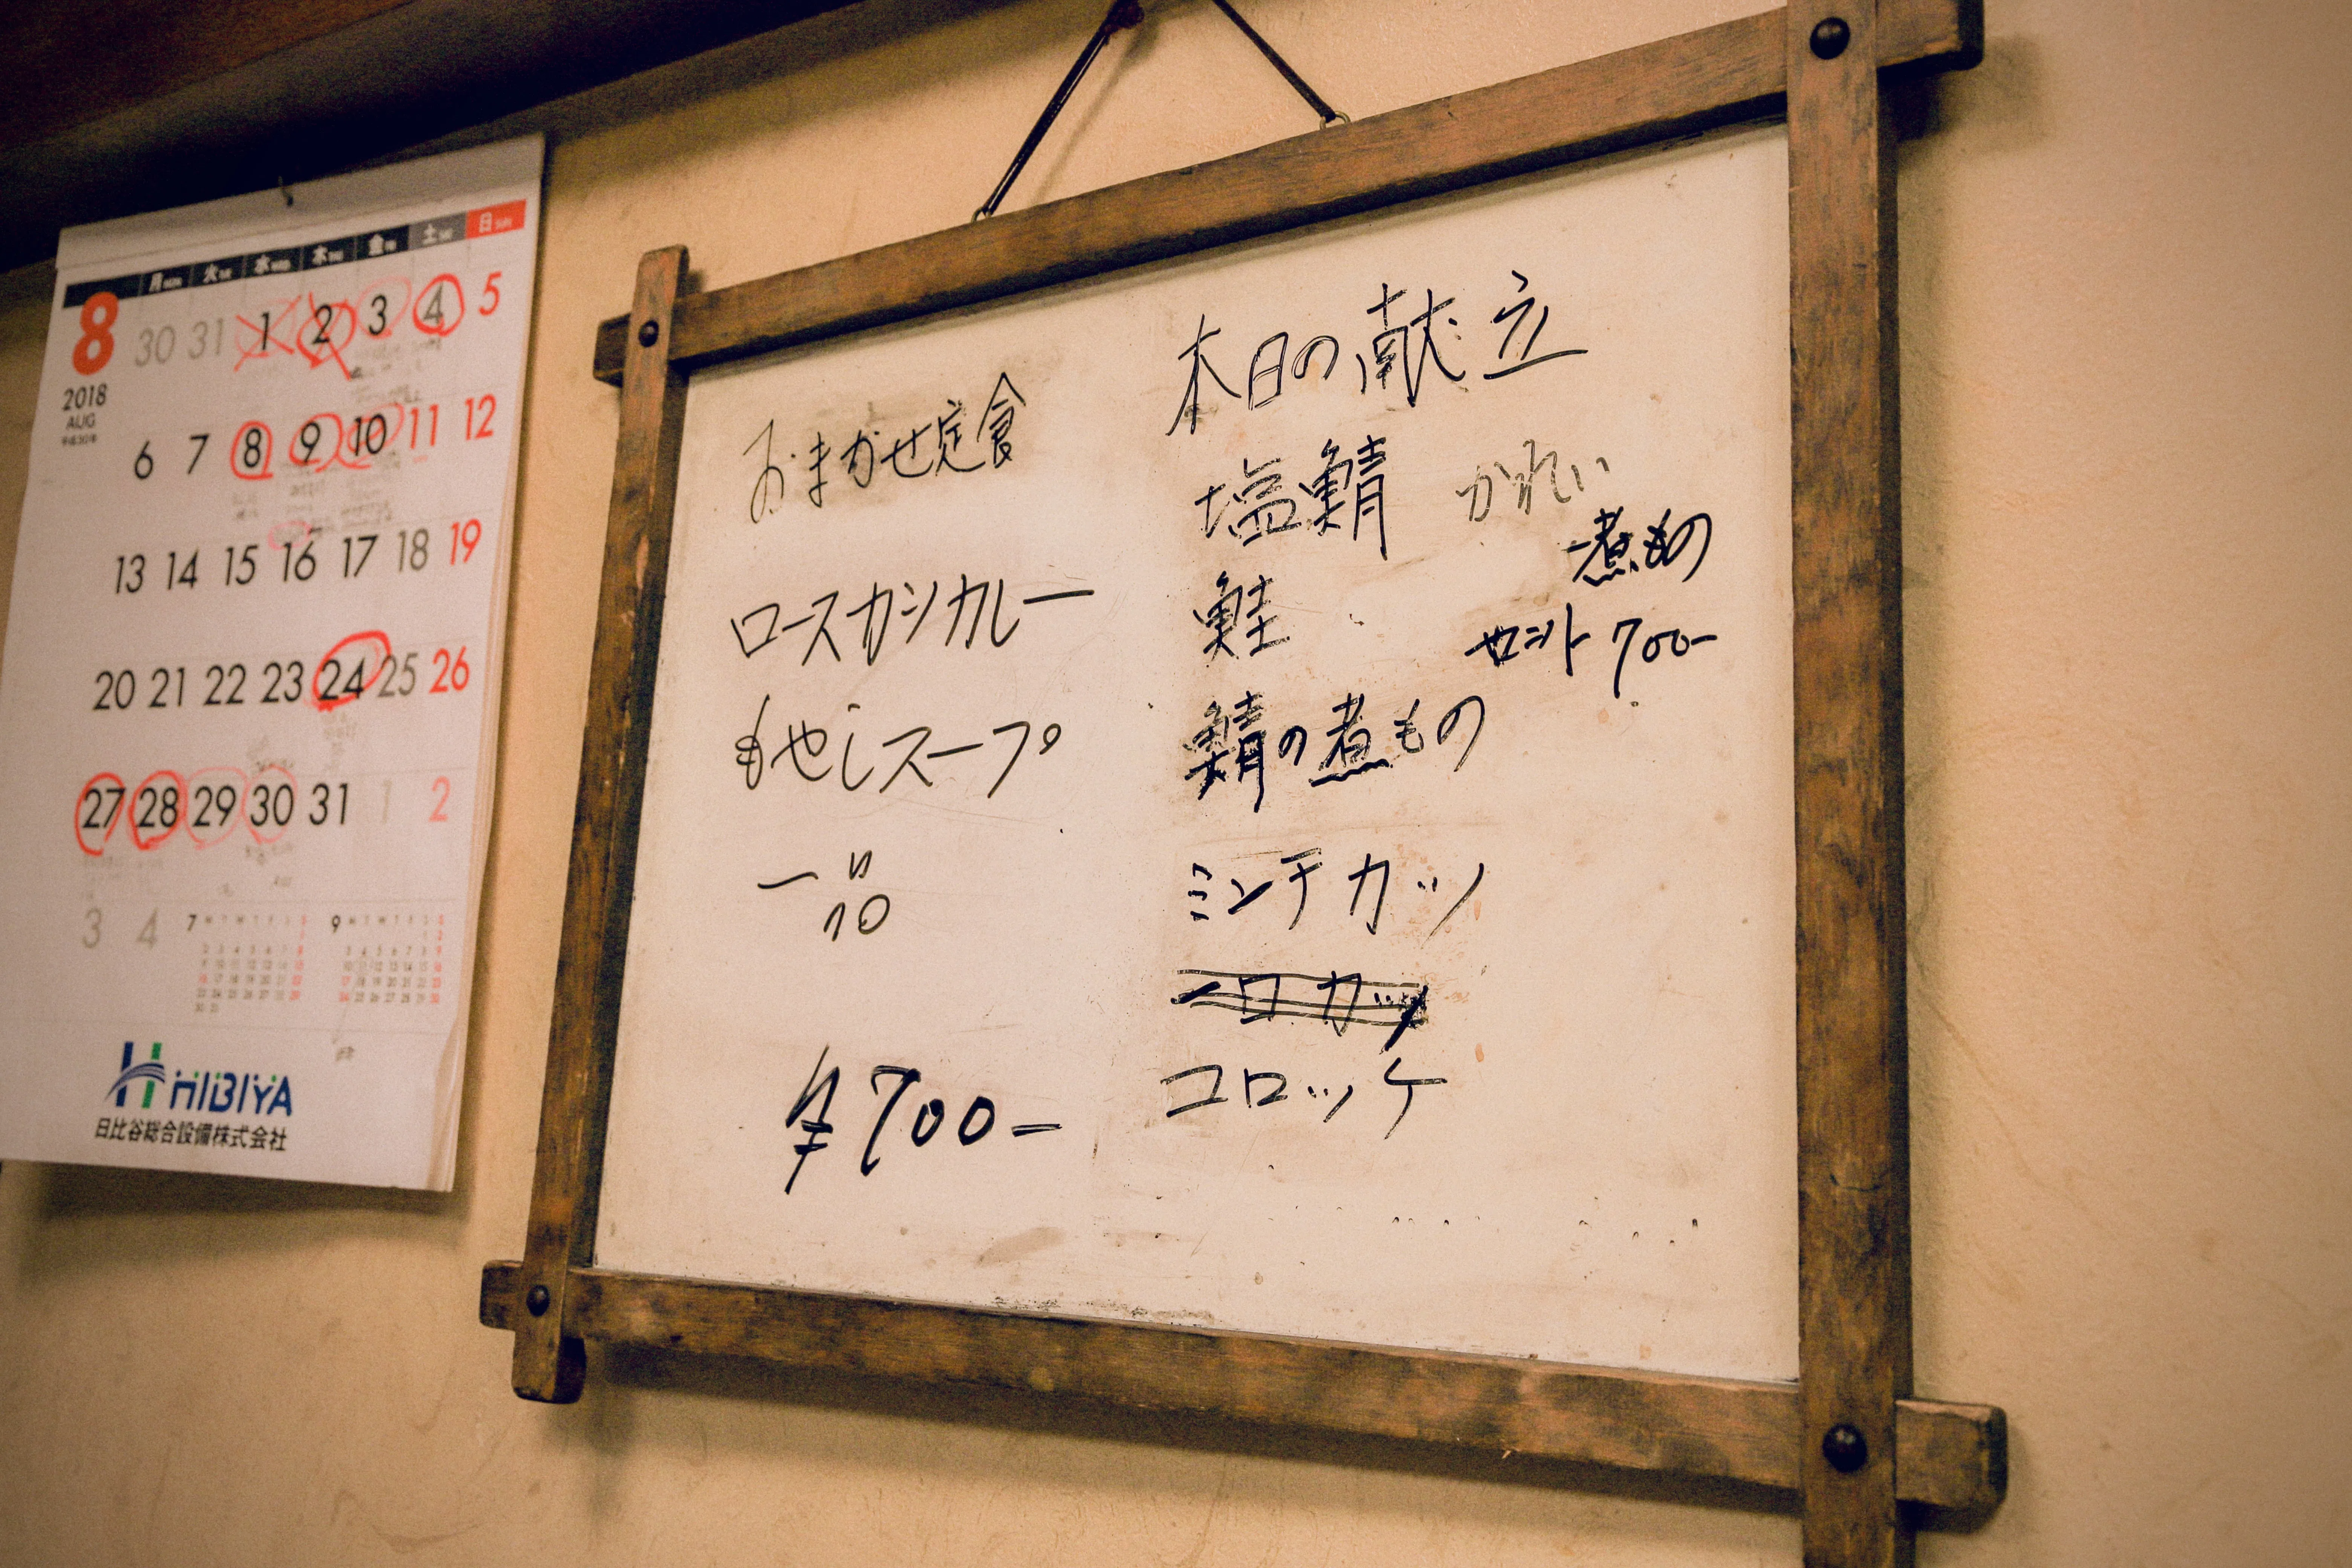 月 MON 火 水 木 金 土 日 SUN
8
2018
AUG
平成30年
30 31 1 2 3 4 5
6 7 8 9 10 11 12
13 14 15 16 17 18 19
20 21 22 23 24 25 26
27 28 29 30 31 1 2
3 4
7
9
HIBIYA
日比谷総合設備株式会社
本日の献立
塩鯖 かれい
煮もの
鮭
セット 700-
鯖の煮もの
ミンチカツ
一口カツ
コロッケ
おまかせ定食
ロースカツカレー
もやしスープ
一品
¥700-